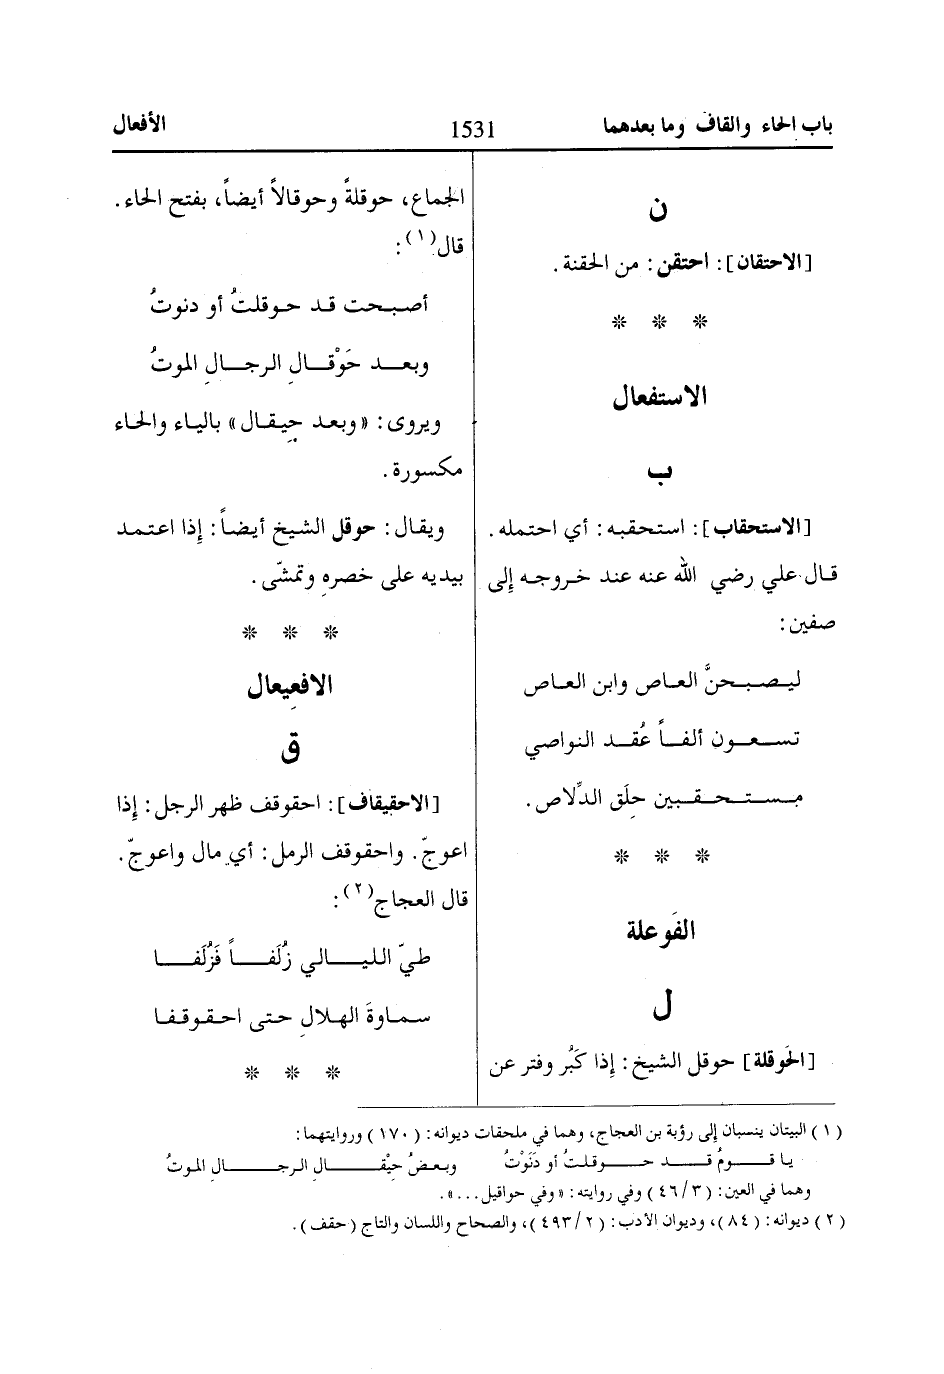 باب الحاء والقاف وما بعدهما
1531
الأفعال
ن
[الاحتقان]: احتقن: من الحقنة.
* * *
الاستفعال
ب
[الاستحقاب]: استحقبه: أي احتمله.
قال علي رضي الله عنه عند خروجه إلى
صفين:
ليصبحنَّ العاص وابن العاص
تسعون ألفاً عُقد النواصي
مستحقبين حلَق الدِّلاص.
* * *
الفَوعلة
ل
[الحَوقلة] حوقل الشيخ: إذا كَبُر وفتر عن
الجماع، حوقلةً وحوقالاً أيضاً، بفتح الحاء.
قال(١):
أصبحت قد حوقلتُ أو دنوتُ
وبعد حَوْقالِ الرجالِ الموتُ
ويروى: «وبعد حِيقال» بالياء والحاء
مكسورة.
ويقال: حوقل الشيخ أيضاً: إذا اعتمد
بيديه على خصرهِ وتمشّى.
* * *
الافعِيعال
ق
[الاحقيقاف]: احقوقف ظهر الرجل: إذا
اعوجّ. واحقوقف الرمل: أي مال واعوجّ.
قال العجاج(٢):
طيّ الليالي زُلَفاً فَزُلَفا
سماوةَ الهلالِ حتى احقوقفا
* * *
(١) البيتان ينسبان إلى رؤبة بن العجاج، وهما في ملحقات ديوانه: (١٧٠) وروايتهما:
يا قومُ قد حوقلتُ أو دَنَوْتُ وبعضُ حِيْقالِ الرجالِ الموتُ
وهما في العين: (٤٦/٣) وفي روايته: «وفي حواقيل...».
(٢) ديوانه: (٨٤)، وديوان الأدب: (٤٩٣/٢)، والصحاح واللسان والتاج (حقف).